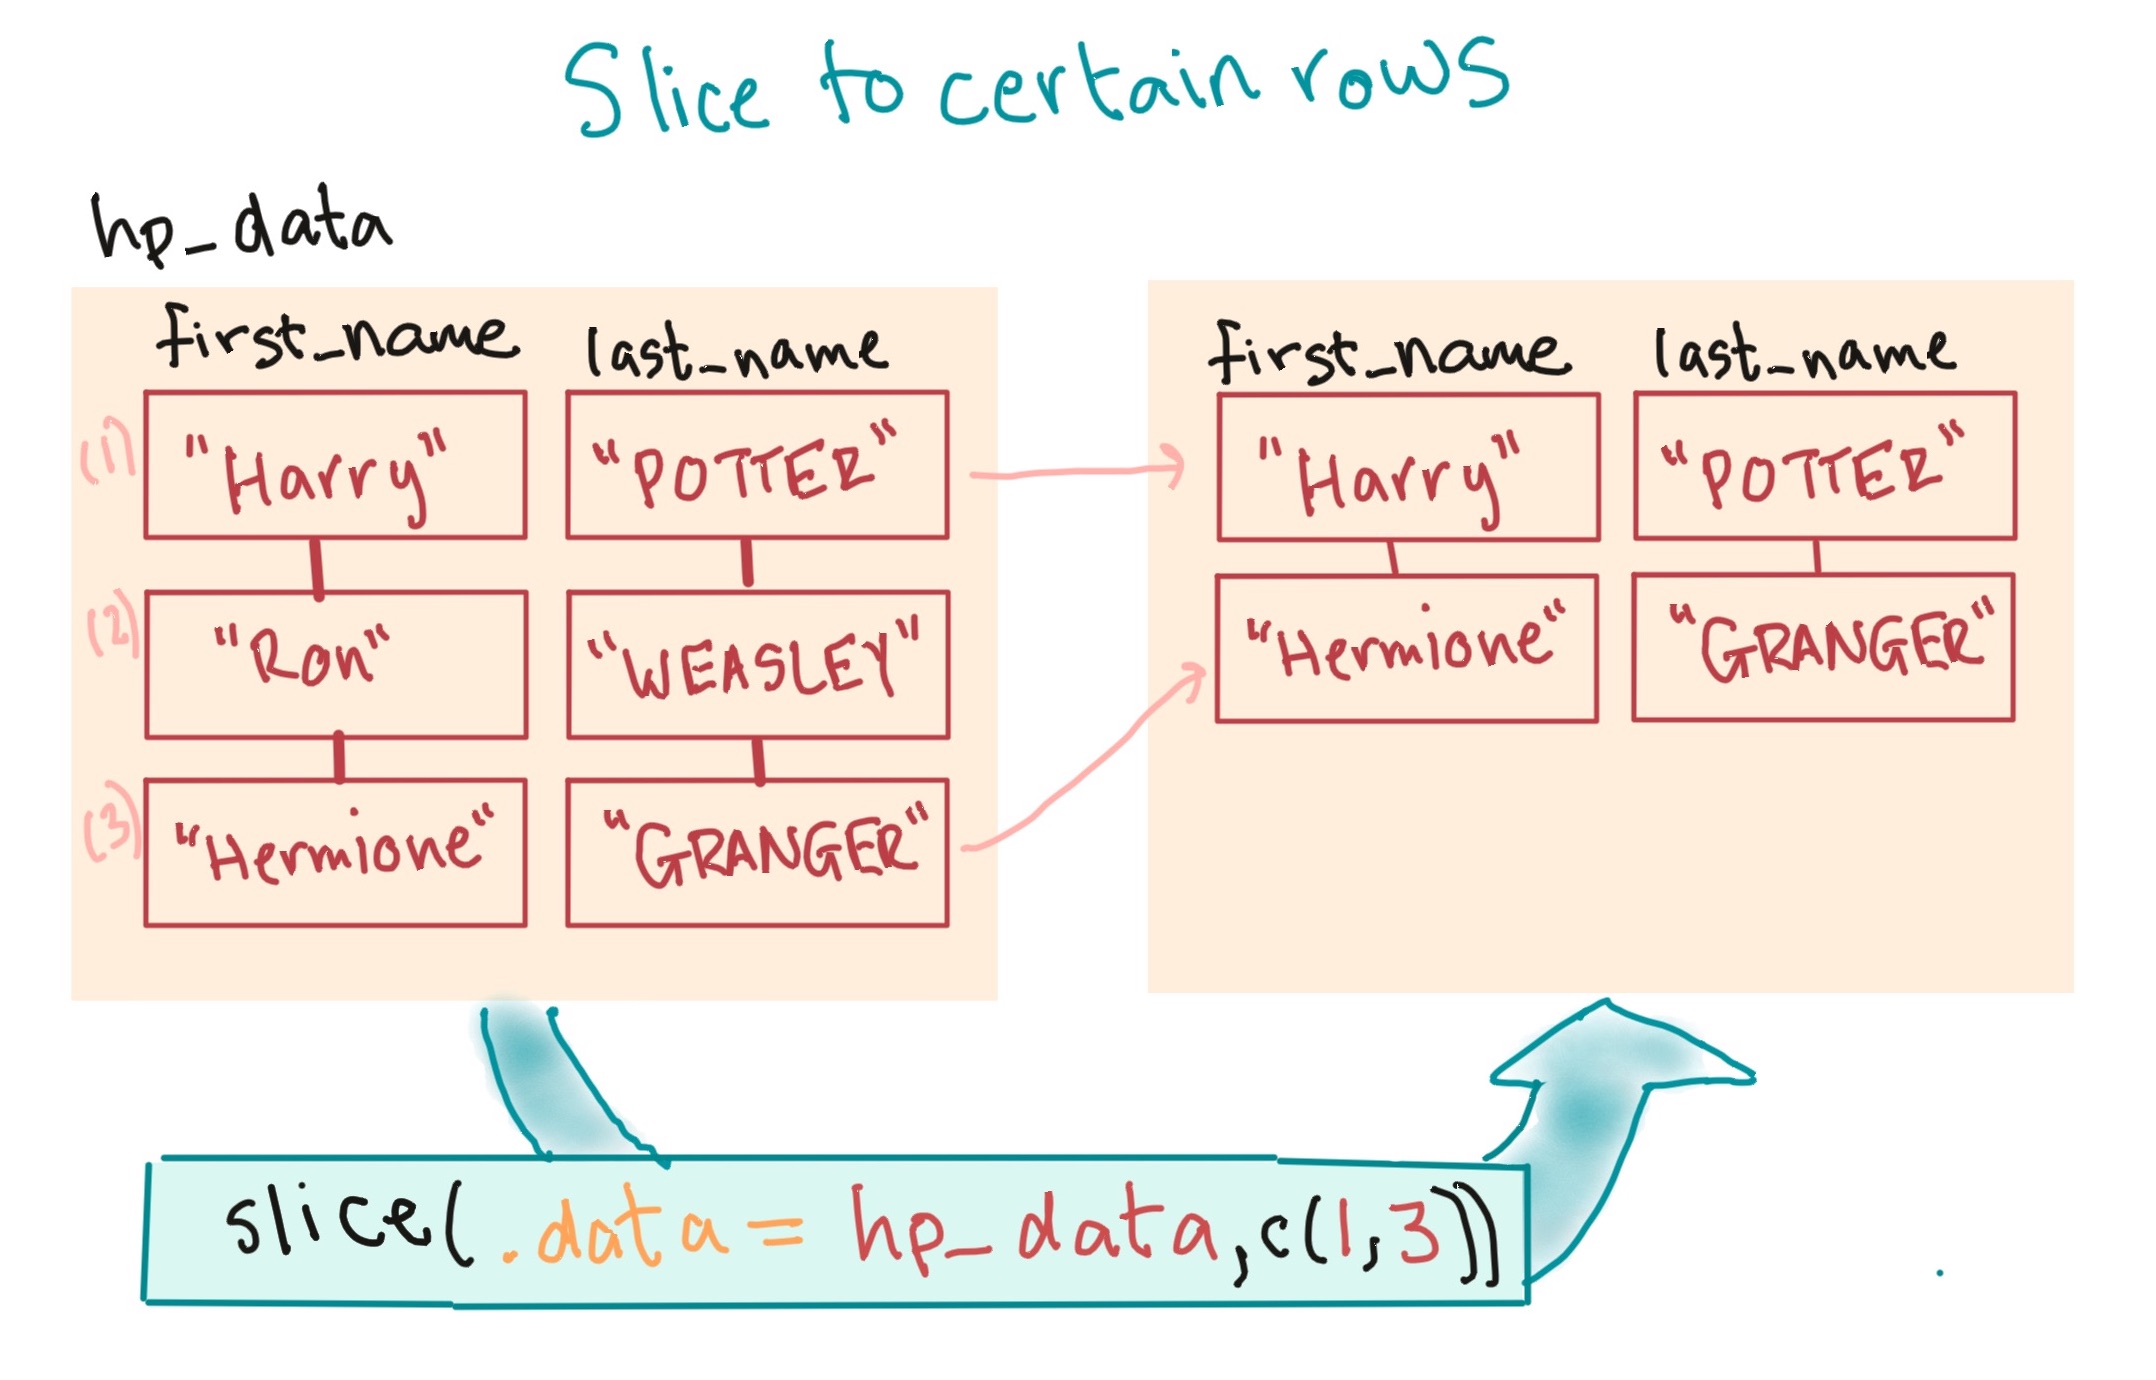 Slice to certain rows
hp_data
first_name last_name
(1) "Harry" "POTTER"
(2) "Ron" "WEASLEY"
(3) "Hermione" "GRANGER"
first_name last_name
"Harry" "POTTER"
"Hermione" "GRANGER"
slice(.data = hp_data, c(1,3))